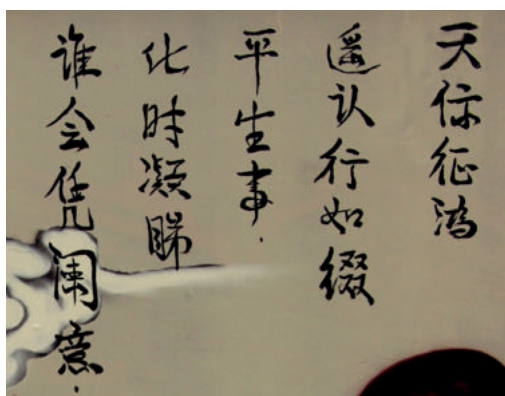 天际征鸿
遥认行如缀
平生事.
此时凝睇
谁会凭阑意.